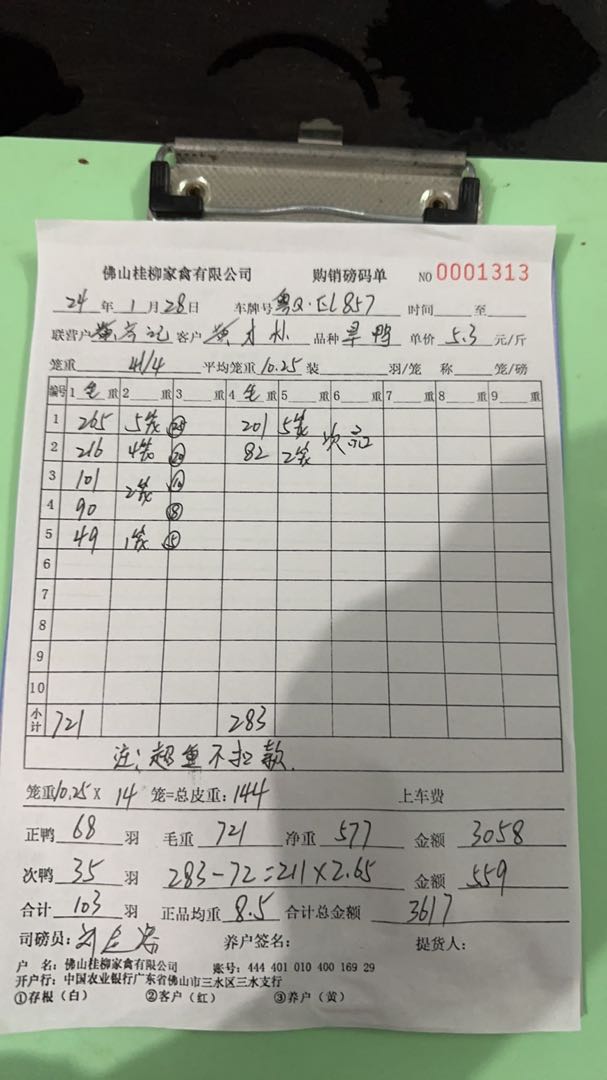 佛山桂柳家禽有限公司 购销磅码单 NO 0001313
24 年 1 月 28 日 车牌号 粤Q·EL857 时间 至
联营户 客户 品种 旱鸭 单价 5.3 元/斤
笼重 41/4 平均笼重 10.25 装 羽/笼 称 笼/磅
编号 1 毛 重 2 重 3 重 4 毛 重 5 重 6 重 7 重 8 重 9 重
1 265 5笼 25 201 5笼 次品
2 216 4笼 20 82 2笼
3 101 2笼
4 90
5 49 1笼
6
7
8
9
10
小计 721 283
注:超重不扣款.
笼重10.25× 14 笼=总皮重:144 上车费
正鸭 68 羽 毛重 721 净重 577 金额 3058
次鸭 35 羽 283-72=211×2.65 金额 559
合计 103 羽 正品均重 8.5 合计总金额 3617
司磅员: 养户签名: 提货人:
户 名:佛山桂柳家禽有限公司 账号:444 401 010 400 169 29
开户行:中国农业银行广东省佛山市三水区三水支行
①存根(白) ②客户(红) ③养户(黄)